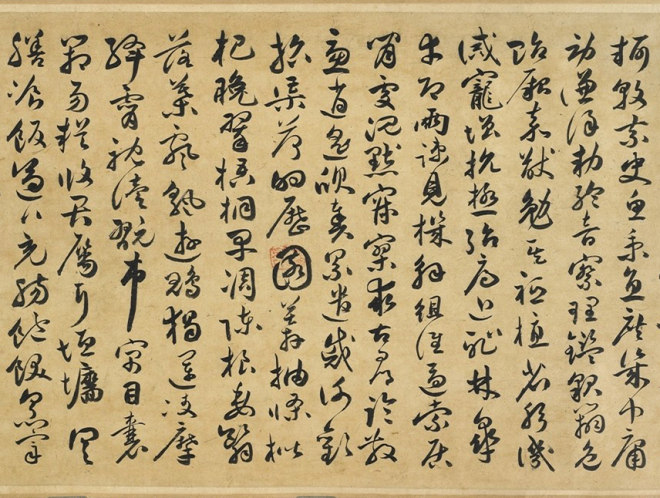 軻敦素史魚秉直庶幾中庸
勞謙謹敕聆音察理鑑貌辨色
貽厥嘉猷勉其祗植省躬譏
誡寵增抗極殆辱近恥林皋
幸即兩疏見機解組誰逼索居
閑處沉默寂寥求古尋論散
慮逍遙欣奏累遣慼謝歡
招渠荷的歷園莽抽條枇
杷晚翠梧桐早凋陳根委翳
落葉飄飖遊鵾獨運凌摩
絳霄耽讀翫市寓目囊
箱易輶攸畏屬耳垣墻具
膳飡飯適口充腸飽飫烹宰